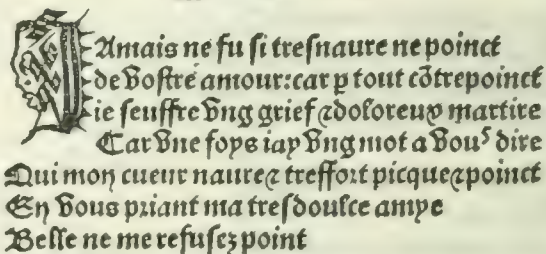 IAmais ne fu si tresnaure ne poinct
de vostre amour:car p tout cōtrepoinct
ie seuffre vng grief ⁊ doloreux martire
Car vne foys iay vng mot a vouꝰ dire
Qui mon cueur naure ⁊ treffort picque ⁊ poinct
En vous priant ma tresdoulce amye
Belle ne me refusez point